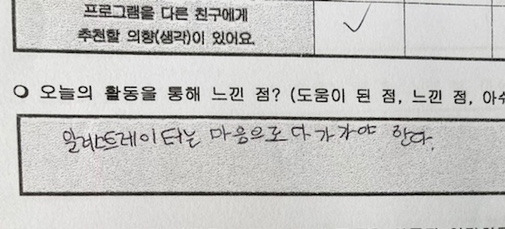 프로그램을 다른 친구에게
추천할 의향(생각)이 있어요.
오늘의 활동을 통해 느낀 점? (도움이 된 점, 느낀 점, 아쉬
일러스트레이터는 마음으로 다가가야 한다.